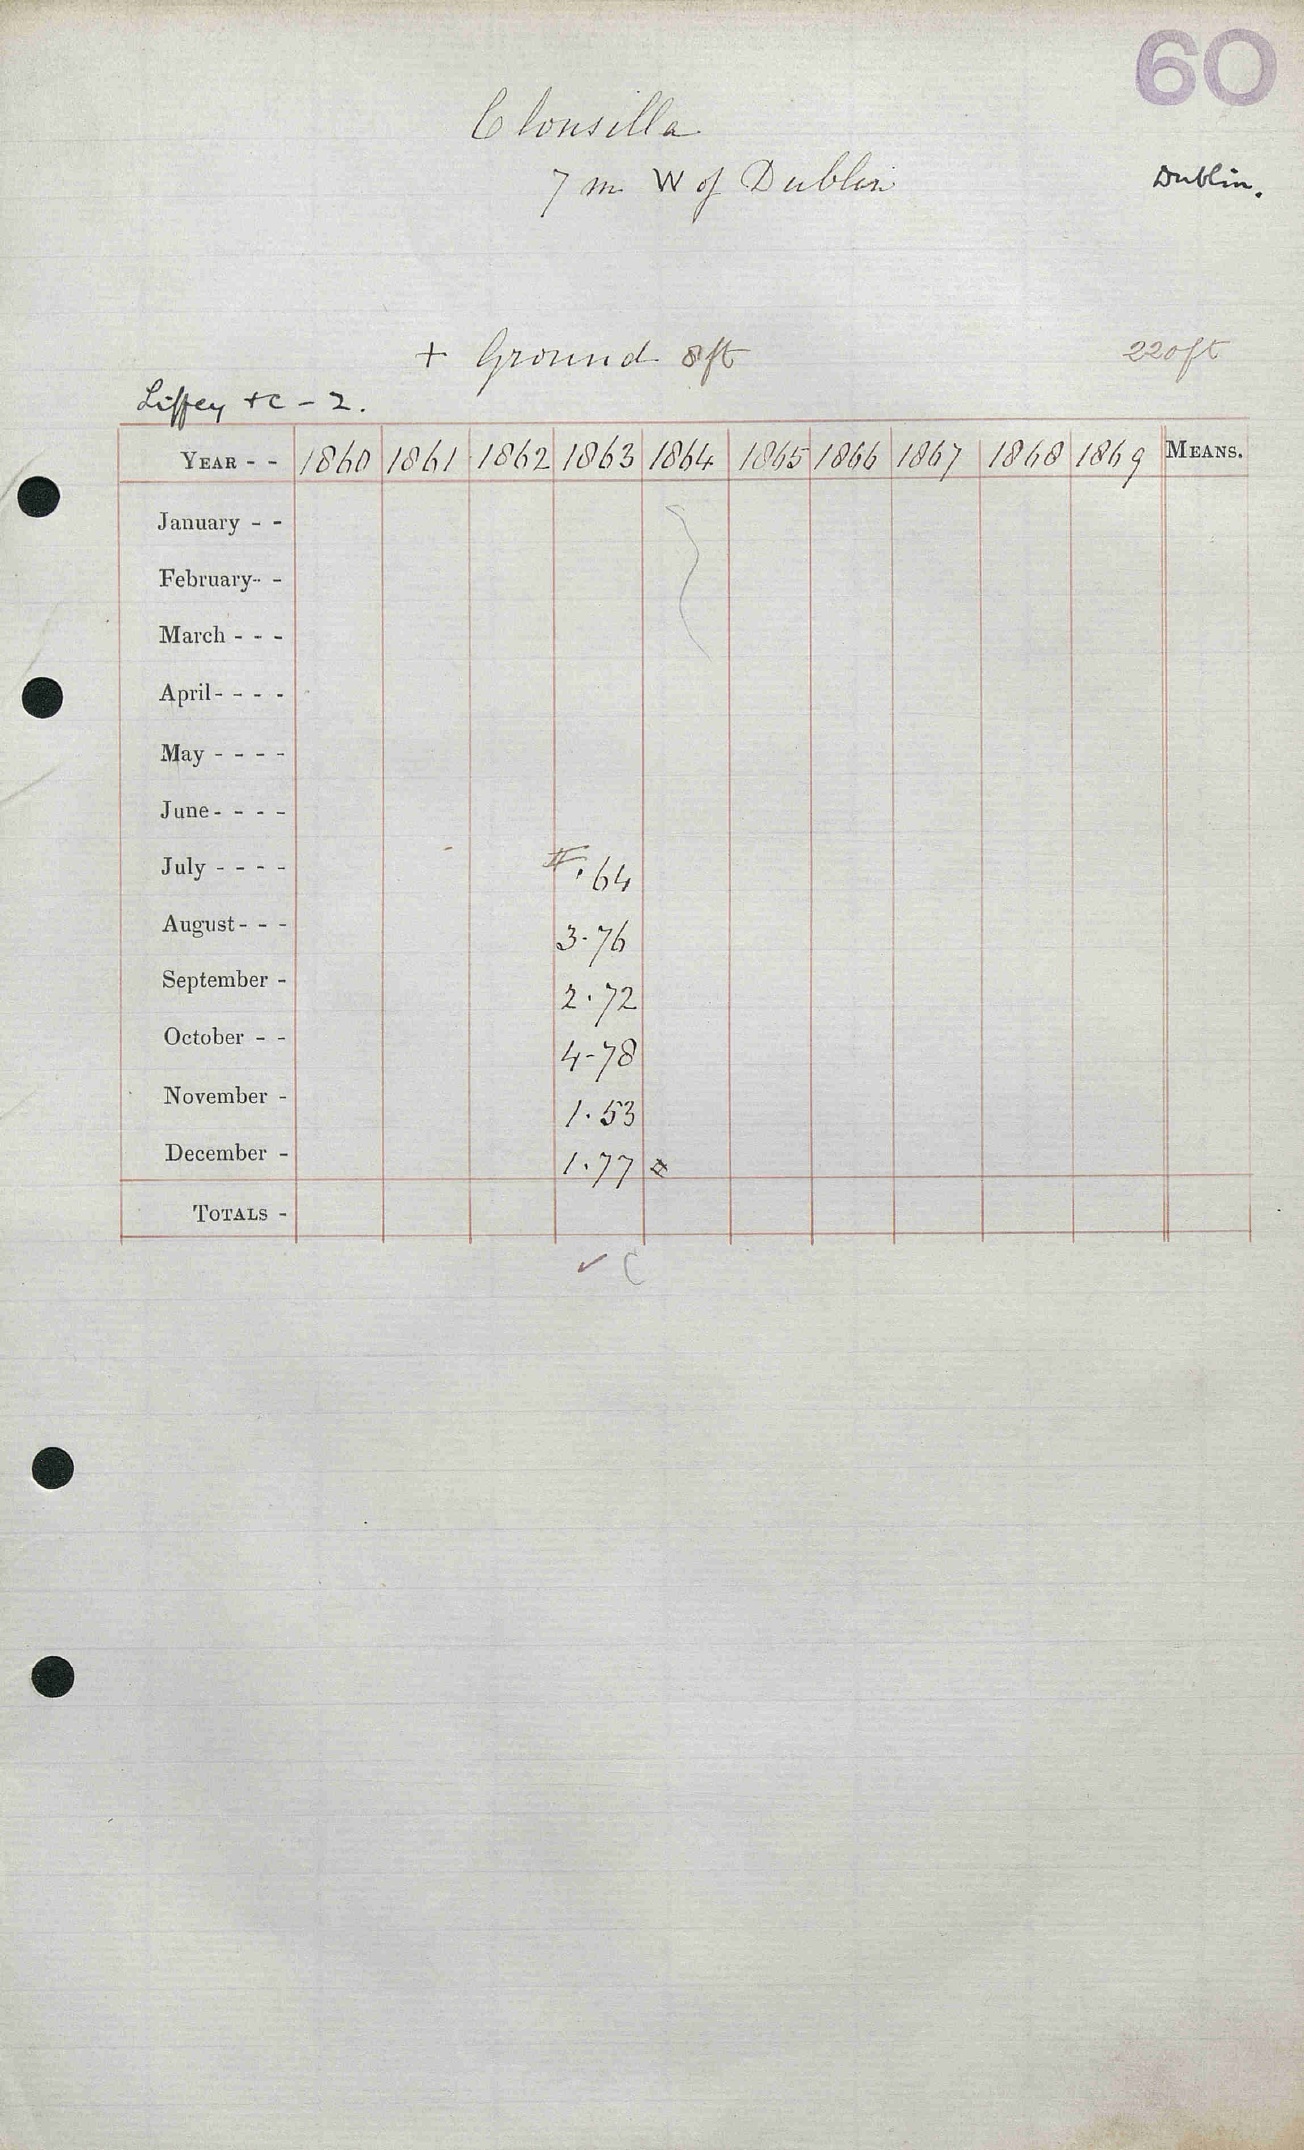 60
Clonsilla
7 m W of Dublin
Dublin.
+ Ground 8ft
220ft
Liffey &c - 2.
YEAR - - 1860 1861 1862 1863 1864 1865 1866 1867 1868 1869 MEANS.
January - -
February - -
March - - -
April - - - -
May - - - -
June - - - -
July - - - - # .64
August - - - 3.76
September - 2.72
October - - 4-78
November - 1.53
December - 1.77 #
TOTALS -
✓ C